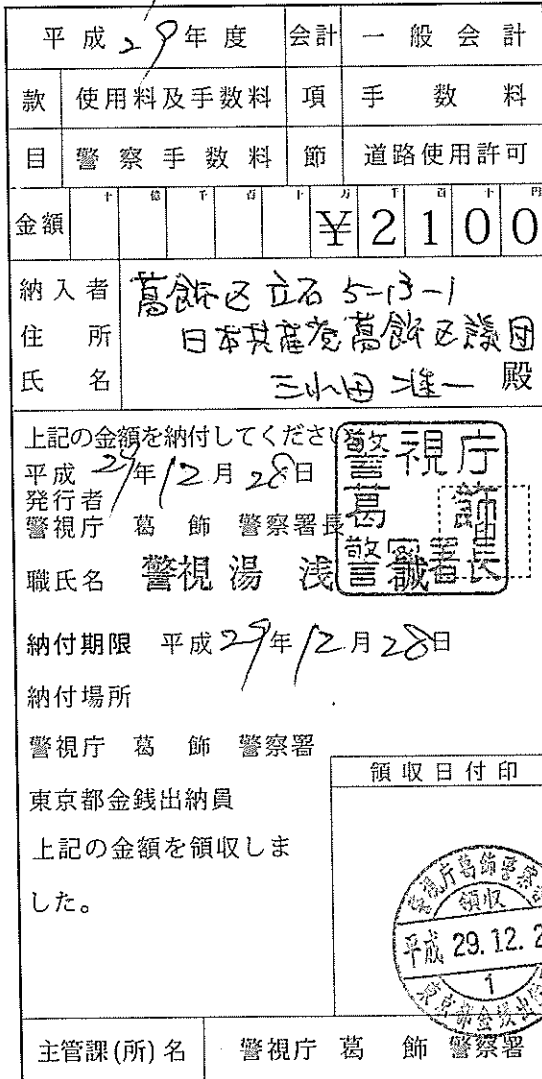 平成29年度 会計 一般会計
款 使用料及手数料 項 手数料
目 警察手数料 節 道路使用許可
十 億 千 百 十 万 千 百 十 円
金額 ¥2100
納入者 葛飾区立石5-13-1
住所 日本共産党葛飾区議団
氏名 三小田准一 殿
上記の金額を納付してください
平成29年12月28日
発行者
警視庁 葛飾 警察署長
職氏名 警視 湯浅 誠
警視庁
葛飾
警察署長
印
納付期限 平成29年12月28日
納付場所
警視庁 葛飾 警察署
東京都金銭出納員
上記の金額を領収しま
した。
領収日付印
警視庁葛飾警察
領収
平成 29.12.2
1
東京都金銭出納
主管課(所)名 警視庁 葛飾 警察署